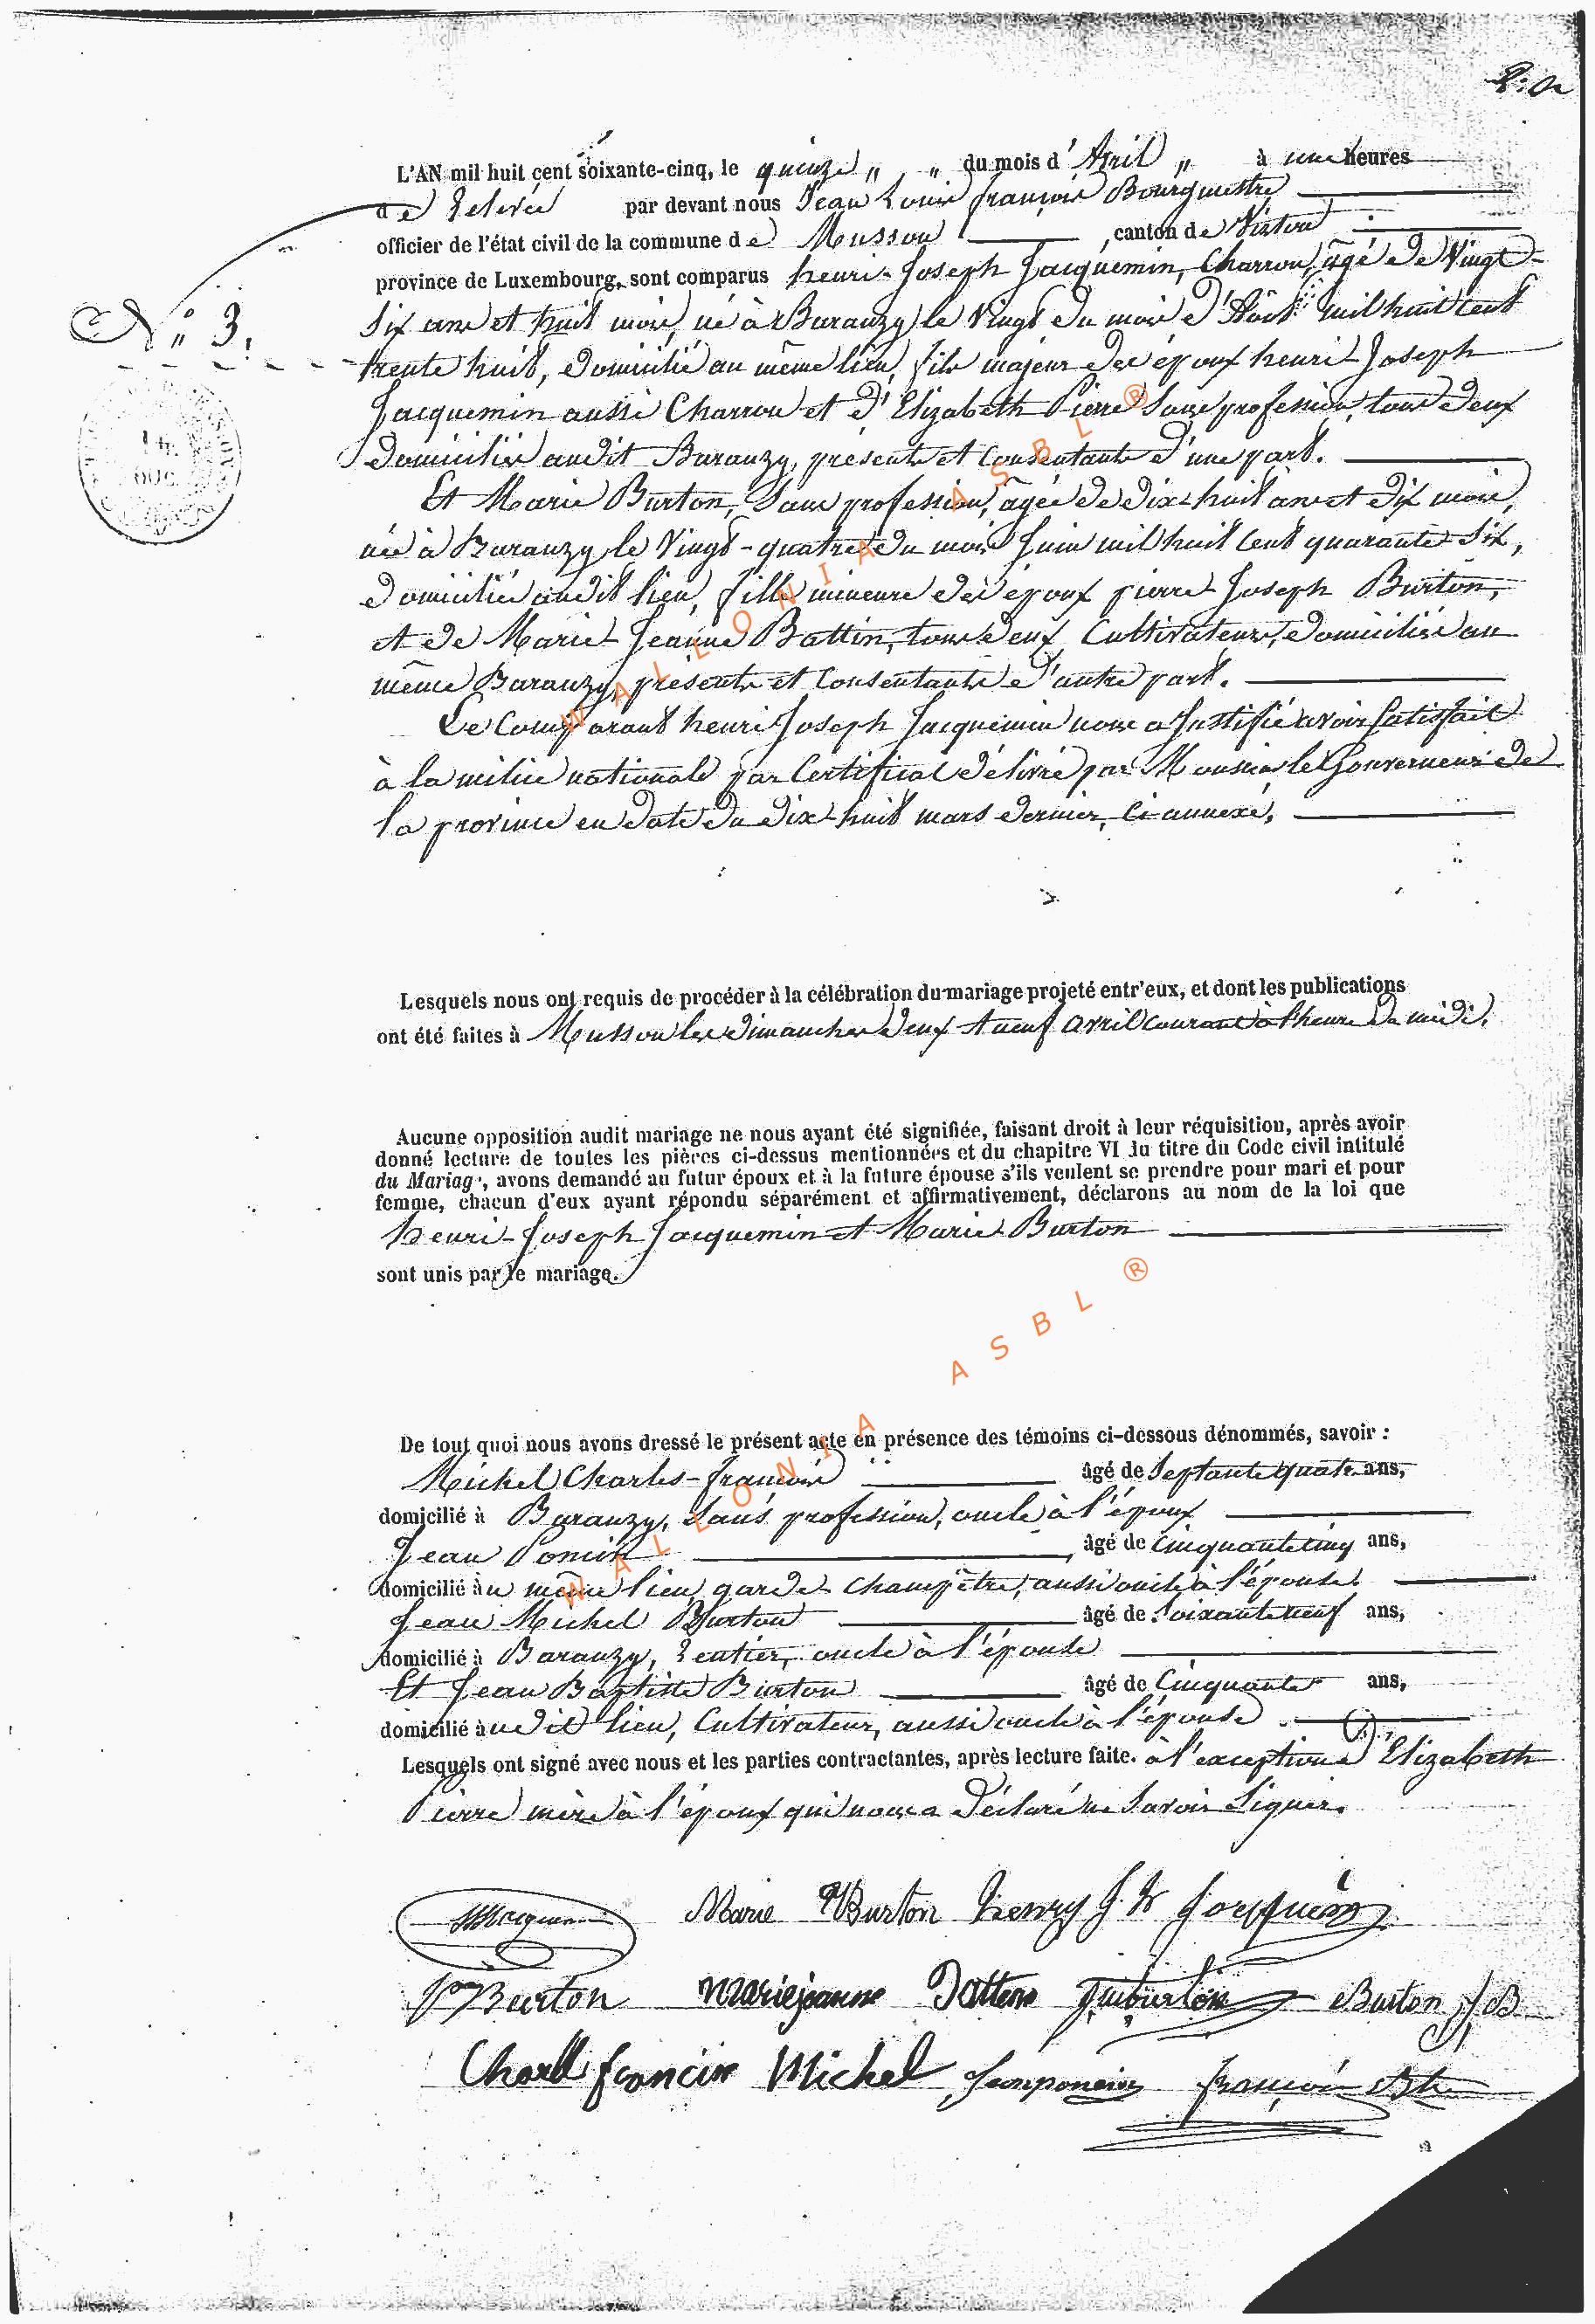 L'AN mil huit cent soixante-cinq, le quinze „ „ du mois d'Avril „ à une heures
de Relevée par devant nous Jean Louis François Bourgmestre
officier de l'état civil de la commune de Musson canton de Virton
province de Luxembourg, sont comparus henri-Joseph Jacquemin, Charron, âgé de Vingt-
N° 3.
Six ans et huit mois, né à Baranzy le Vingt du mois d'Août mil huit cent
trente huit, domicilié au même lieu, fils majeur des époux henri-Joseph
Jacquemin aussi Charron et d'Elizabeth Pierre Sans profession, tous deux
domiciliés audit Baranzy, présents et Consentants d'une part.
Et Marie Burton, Sans profession, âgée de dix-huit ans et dix mois,
née à Baranzy le Vingt-quatre du mois Juin mil huit cent quarante-Six,
domiciliée audit lieu, fille mineure des époux pierre-Joseph Burton,
et de Marie-Jeanne Battin, tous deux Cultivateurs, domiciliés au
même Baranzy, présents et Consentants d'autre part.
Le Comparant henri Joseph Jacquemin nous a Justifié avoir Satisfait
à la milice nationale par Certificat délivré par Monsieur le Gouverneur de
la province en date du dix-huit mars dernier, Ci-annexé,
Lesquels nous ont requis de procéder à la célébration du mariage projeté entr'eux, et dont les publications
ont été faites à Musson les dimanches deux et neuf avril courant à l'heure de midi.
Aucune opposition audit mariage ne nous ayant été signifiée, faisant droit à leur réquisition, après avoir
donné lecture de toutes les pièces ci-dessus mentionnées et du chapitre VI du titre du Code civil intitulé
du Mariage, avons demandé au futur époux et à la future épouse s'ils veulent se prendre pour mari et pour
femme, chacun d'eux ayant répondu séparément et affirmativement, déclarons au nom de la loi que
henri-Joseph Jacquemin et Marie Burton
sont unis par le mariage.
De tout quoi nous avons dressé le présent acte en présence des témoins ci-dessous dénommés, savoir :
Michel Charles-François âgé de Septante quatre ans,
domicilié à Baranzy, Sans profession, oncle à l'époux
Jean Poncin âgé de Cinquante cinq ans,
domicilié au même lieu, garde-Champêtre, aussi oncle à l'épouse.
Jean Michel Burton âgé de Soixante neuf ans,
domicilié à Baranzy, Rentier, oncle à l'épouse
Et Jean Baptiste Burton âgé de Cinquante ans,
domicilié audit lieu, Cultivateur, aussi oncle à l'épouse.
Lesquels ont signé avec nous et les parties contractantes, après lecture faite. à l'exception d'Elizabeth
Pierre mère à l'époux qui nous a Déclaré ne Savoir Signer.
Marie Burton henry J
Burton mariejeanne Burton J B
Charle francois Michel Jean poncin françois
WALLONIA ASBL ®
WALLONIA ASBL ®